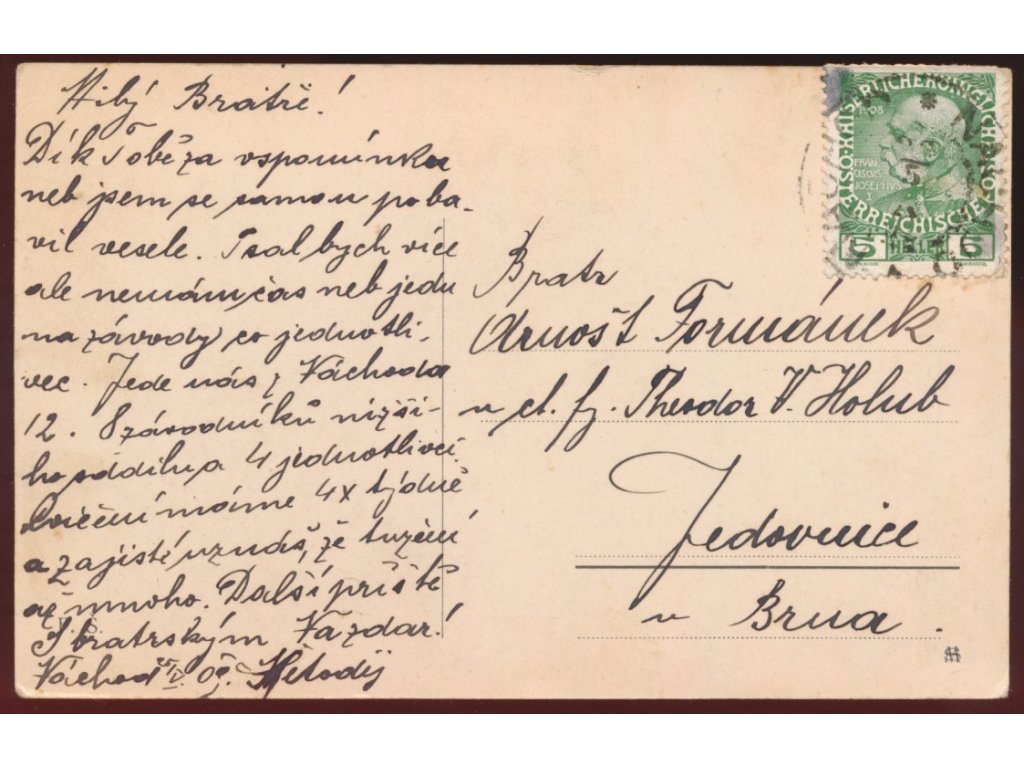 Milý Bratře!
Dík Tobě za vzpomínku
neb jsem se samou poba-
vil vesele. Psal bych více
ale nemám čas neb jedu
na závody co jednotli-
vec. Jede nás z Náchoda
12. 8 závodníků nižší-
ho oddílu a 4 jednotlivci.
Cvičení máme 4x týdně
a zajisté uznáš, že cvičení
až mnoho. Další příště
S bratrským Nazdar!
Náchod 09. Metoděj
KAISERLICHE KÖNIGLICHE ÖSTERREICHISCHE
1908
FRAN
CISCUS
JOSEPHUS
5 HELLER 5
Bratr
Arnošt Formánek
u ct. fy. Theodor V. Holub
Jedovnice
u Brna.